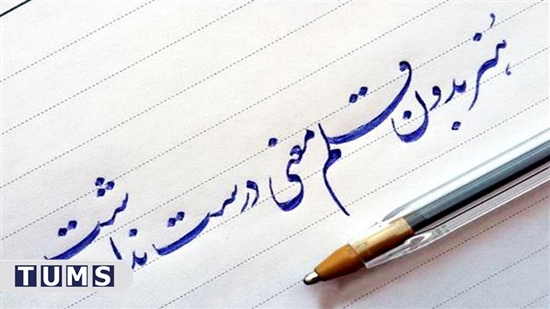 هنر بدون قلم معنی درست نداشت
TUMS